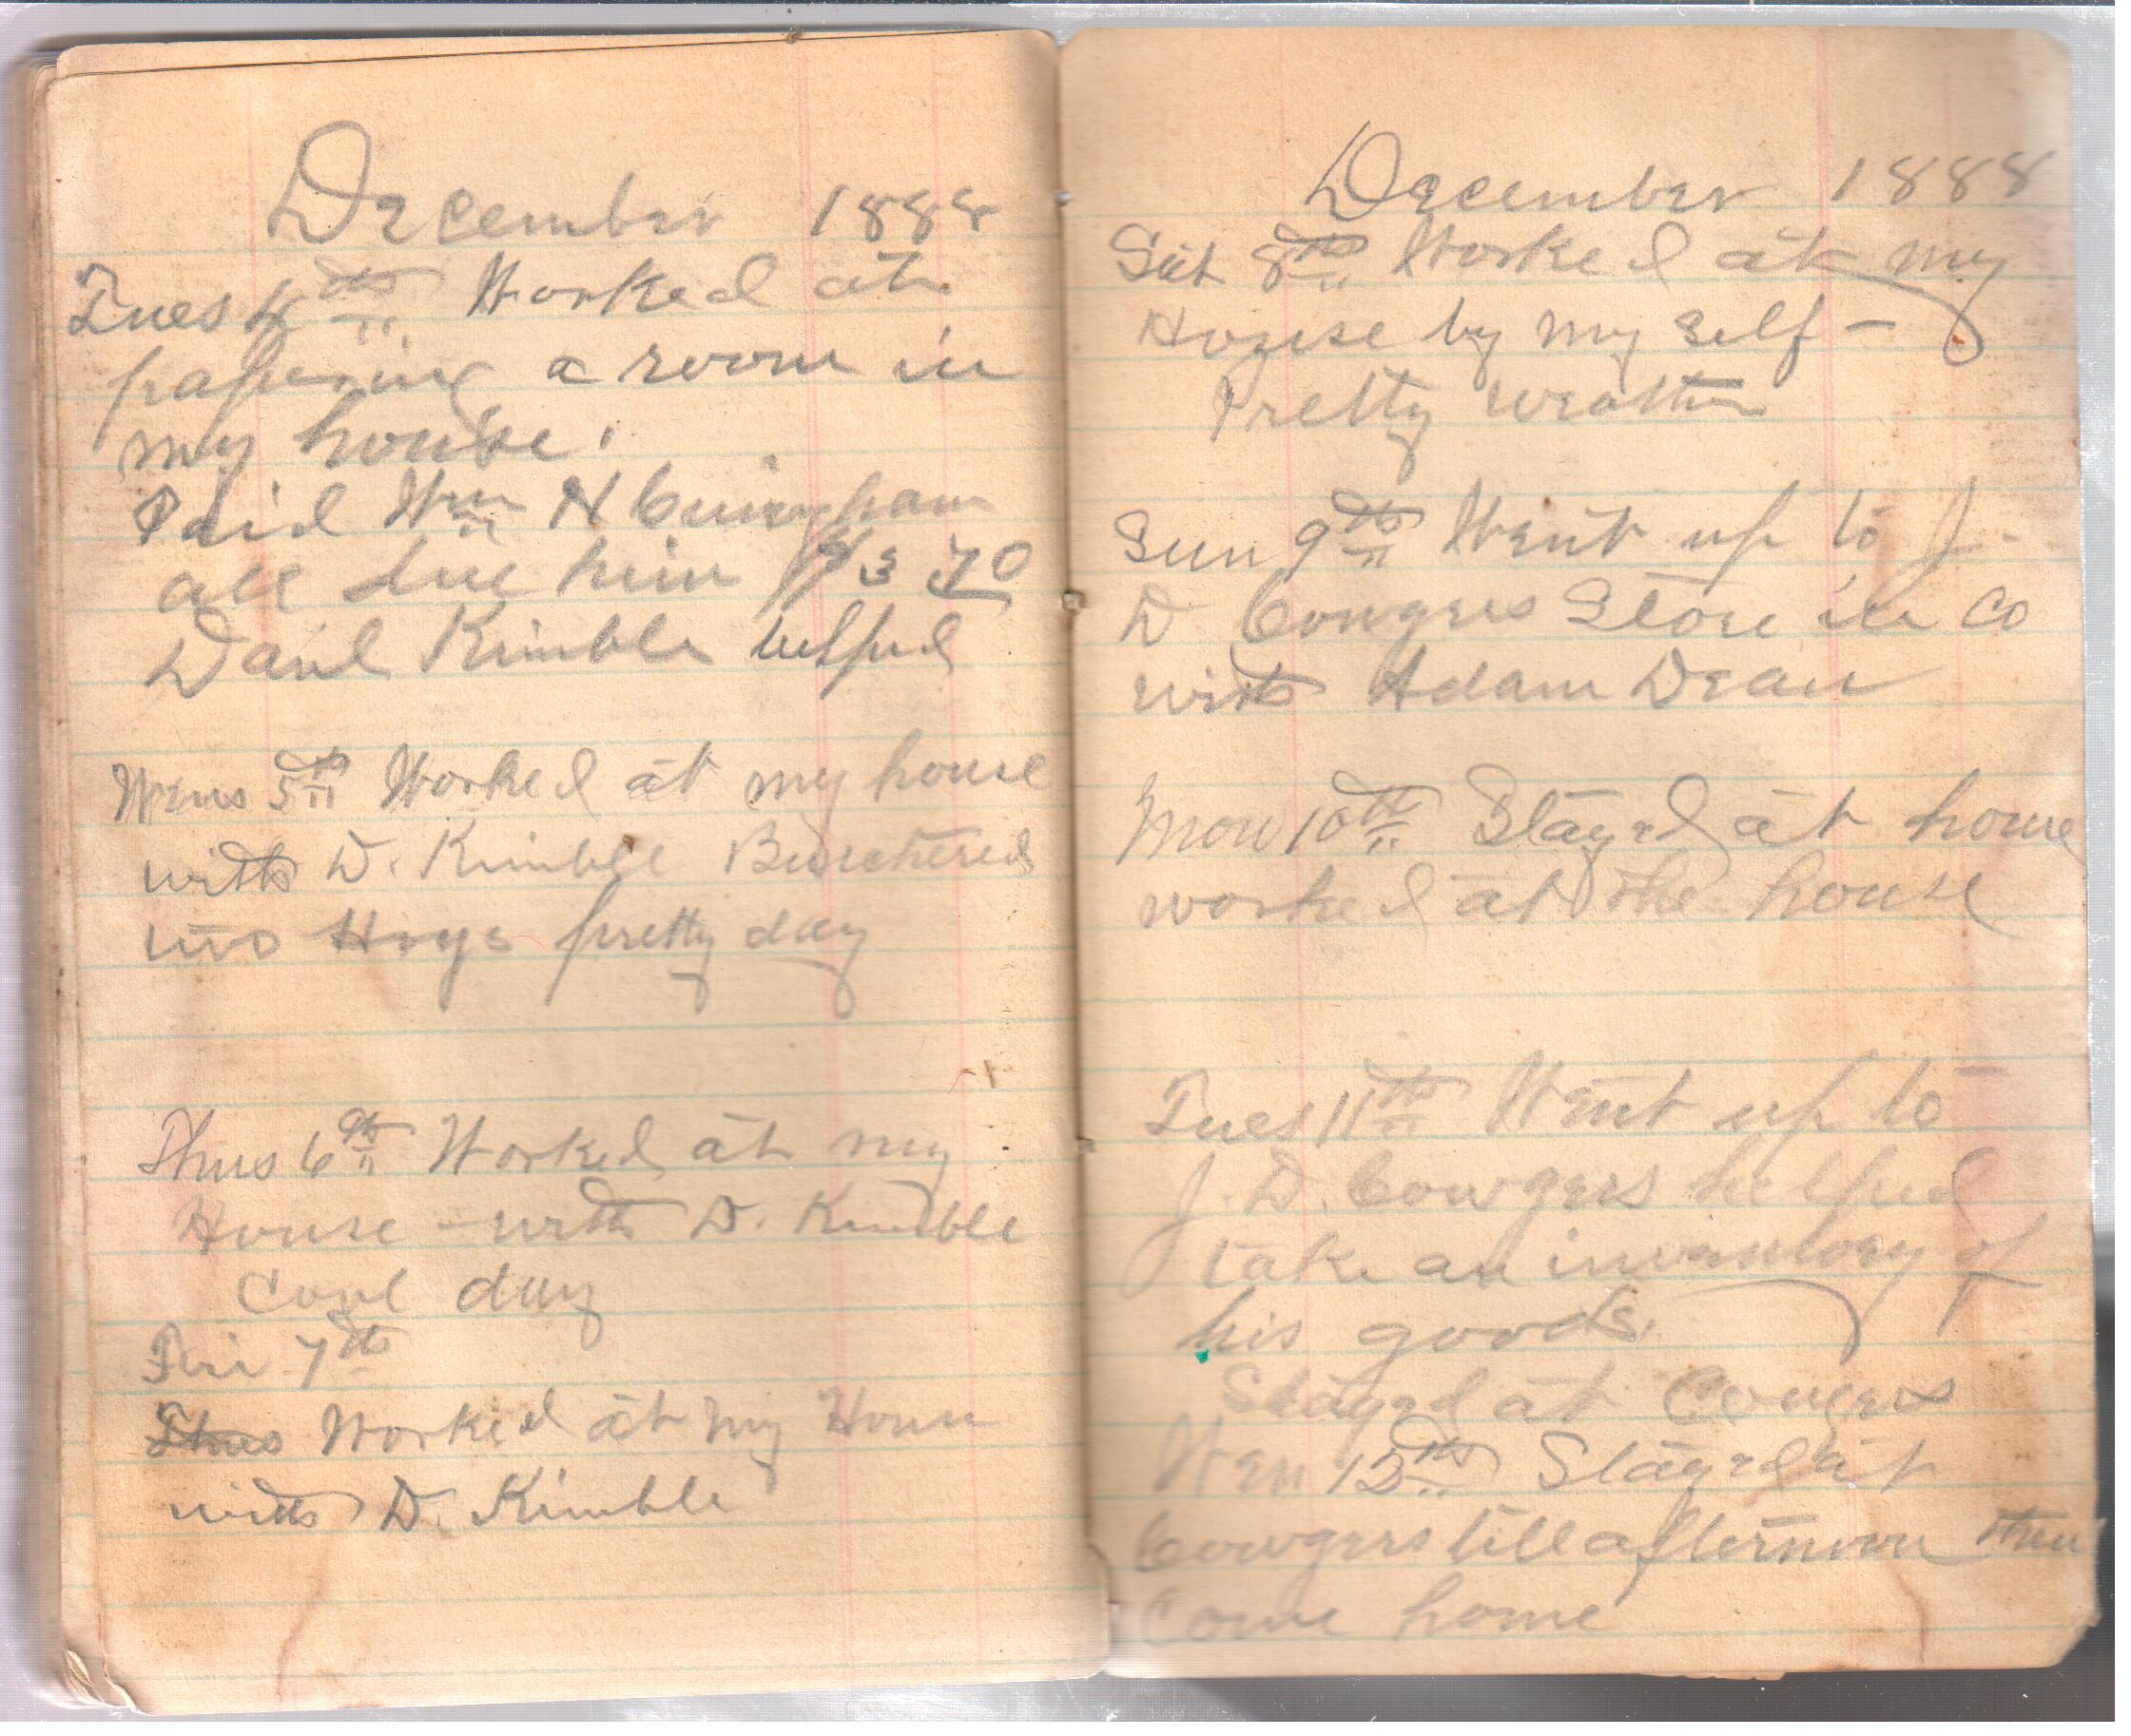 December 1888
Tues 4th Worked at
papering a room in
my house.
Paid Wm H Cuningham
all due him $3 70
Danl Kimble helped
Wens 5th Worked at my house
with D. Kimble Butchered
two Hogs pretty day
Thus 6th Worked at my
House - with D. Kimble
Cool day
Fri 7th
Thus Worked at my House
with D. Kimble
December 1888
Sat 8th Worked at my
House by my self -
Pretty weather
Sun 9th Went up to J.
D Cowgers Store in co
with Adam Dean
Mon 10th Stayed at home
worked at the house
Tues 11th Went up to
J. D. Cowgers helped
take an inventory of
his goods.
Stayed at Cowgers
Wen 12th Stayed at
Cowgers till afternoon then
Come home